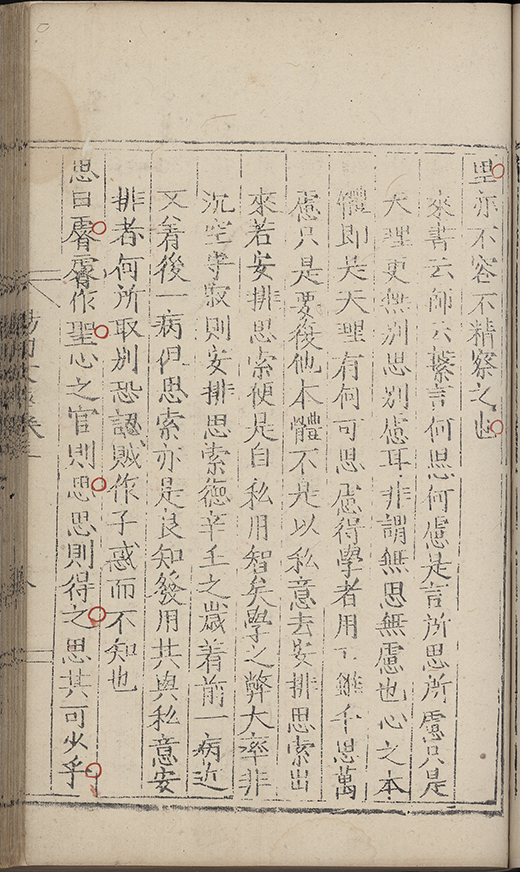 畢亦不容不精察之也
來書云師云繫言何思何慮是言所思所慮只是
天理更無別思別慮耳非謂無思無慮也心之本
體即是天理有何可思慮得學者用工雖千思萬
慮只是要復他本體不是以私意去安排思索出
來若安排思索便是自私用智矣學之弊大率非
沉空守寂則安排思索德辛壬之歲着前一病近
又着後一病但思索亦是良知發用其與私意安
排者何所取別恐認賊作子惑而不知也
思曰睿睿作聖心之官則思思則得之思其可少乎